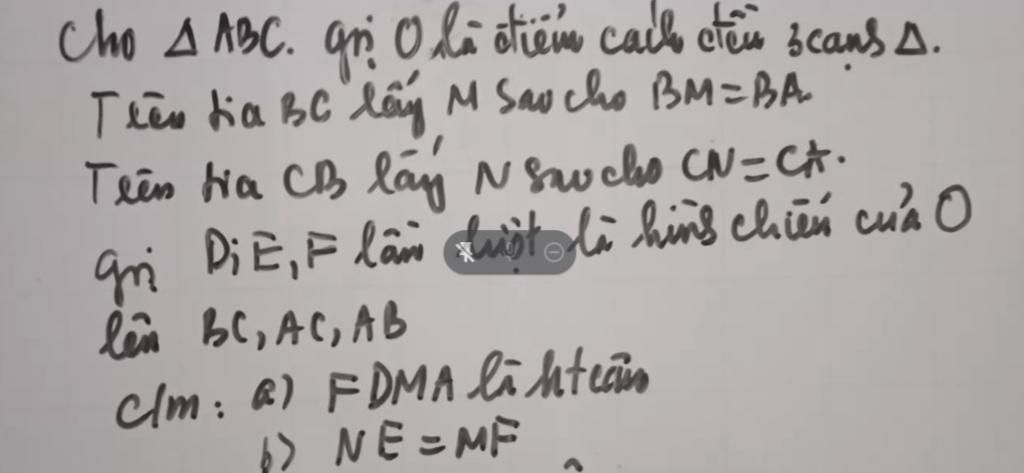 Cho Δ ABC. gọi O là điểm cách đều 3 cạnh Δ.
Trên tia BC lấy M sao cho BM = BA.
Trên tia CB lấy N sao cho CN = CA.
gọi D, E, F lần lượt là hình chiếu của O
lên BC, AC, AB
c/m: a) FDMA là htcân
b) NE = MF